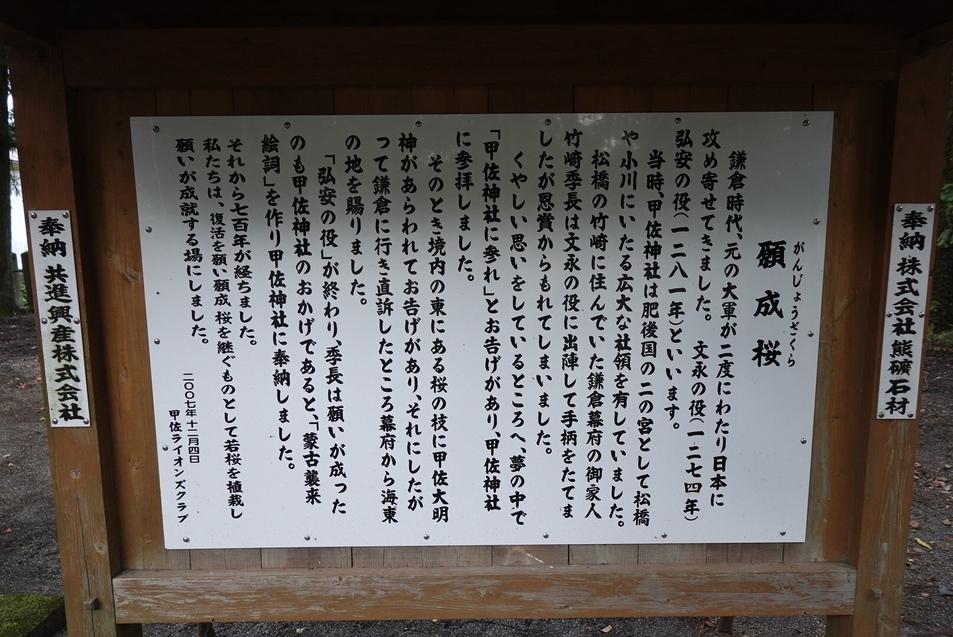 がんじょうざくら
願成桜
鎌倉時代、元の大軍が二度にわたり日本に
攻め寄せてきました。　文永の役(一二七四年)
弘安の役(一二八一年)といいます。
当時、甲佐神社は肥後国の二の宮として松橋
や小川にいたる広大な社領を有していました。
松橋の竹崎に住んでいた鎌倉幕府の御家人
竹崎季長は文永の役に出陣して手柄をたてま
したが恩賞からもれてしまいました。
くやしい思いをしているところへ、夢の中で
「甲佐神社に参れ」とお告げがあり、甲佐神社
に参拝しました。
そのとき境内の東にある桜の枝に甲佐大明
神があらわれてお告げがあり、それにしたが
って鎌倉に行き直訴したところ幕府から海東
の地を賜りました。
「弘安の役」が終わり、季長は願いが成った
のも甲佐神社のおかげであると、「蒙古襲来
絵詞」を作り甲佐神社に奉納しました。
それから七百年が経ちました。
私たちは、復活を願い願成桜を継ぐものとして若桜を植栽し
願いが成就する場にしました。
二〇〇七年十二月四日
甲佐ライオンズクラブ
奉納 株式会社熊礦石材
奉納 共進興産株式会社